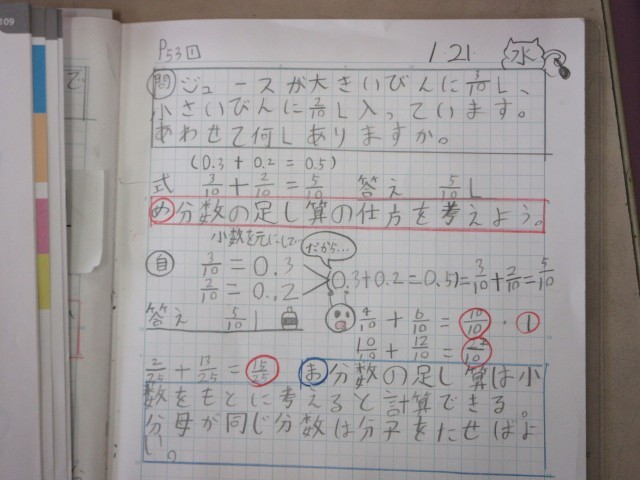 109
P53 1
1.21 水
問 ジュースが大きいびんに3/10L、
小さいびんに2/10L入っています。
あわせて何Lありますか。
(0.3+0.2=0.5)
式 3/10+2/10=5/10 答え 5/10L
め 分数の足し算の仕方を考えよう。
小数を元にして…
だから…
自 3/10=0.3
2/10=0.2
(0.3+0.2=0.5)=3/10+2/10=5/10
答え 5/10L
4/10+6/10=10/10・1
10/10+12/10=
2/25+13/25=15/25
ま 分数の足し算は小
数をもとに考えると計算できる。
分母が同じ分数は分子をたせばよ
い。